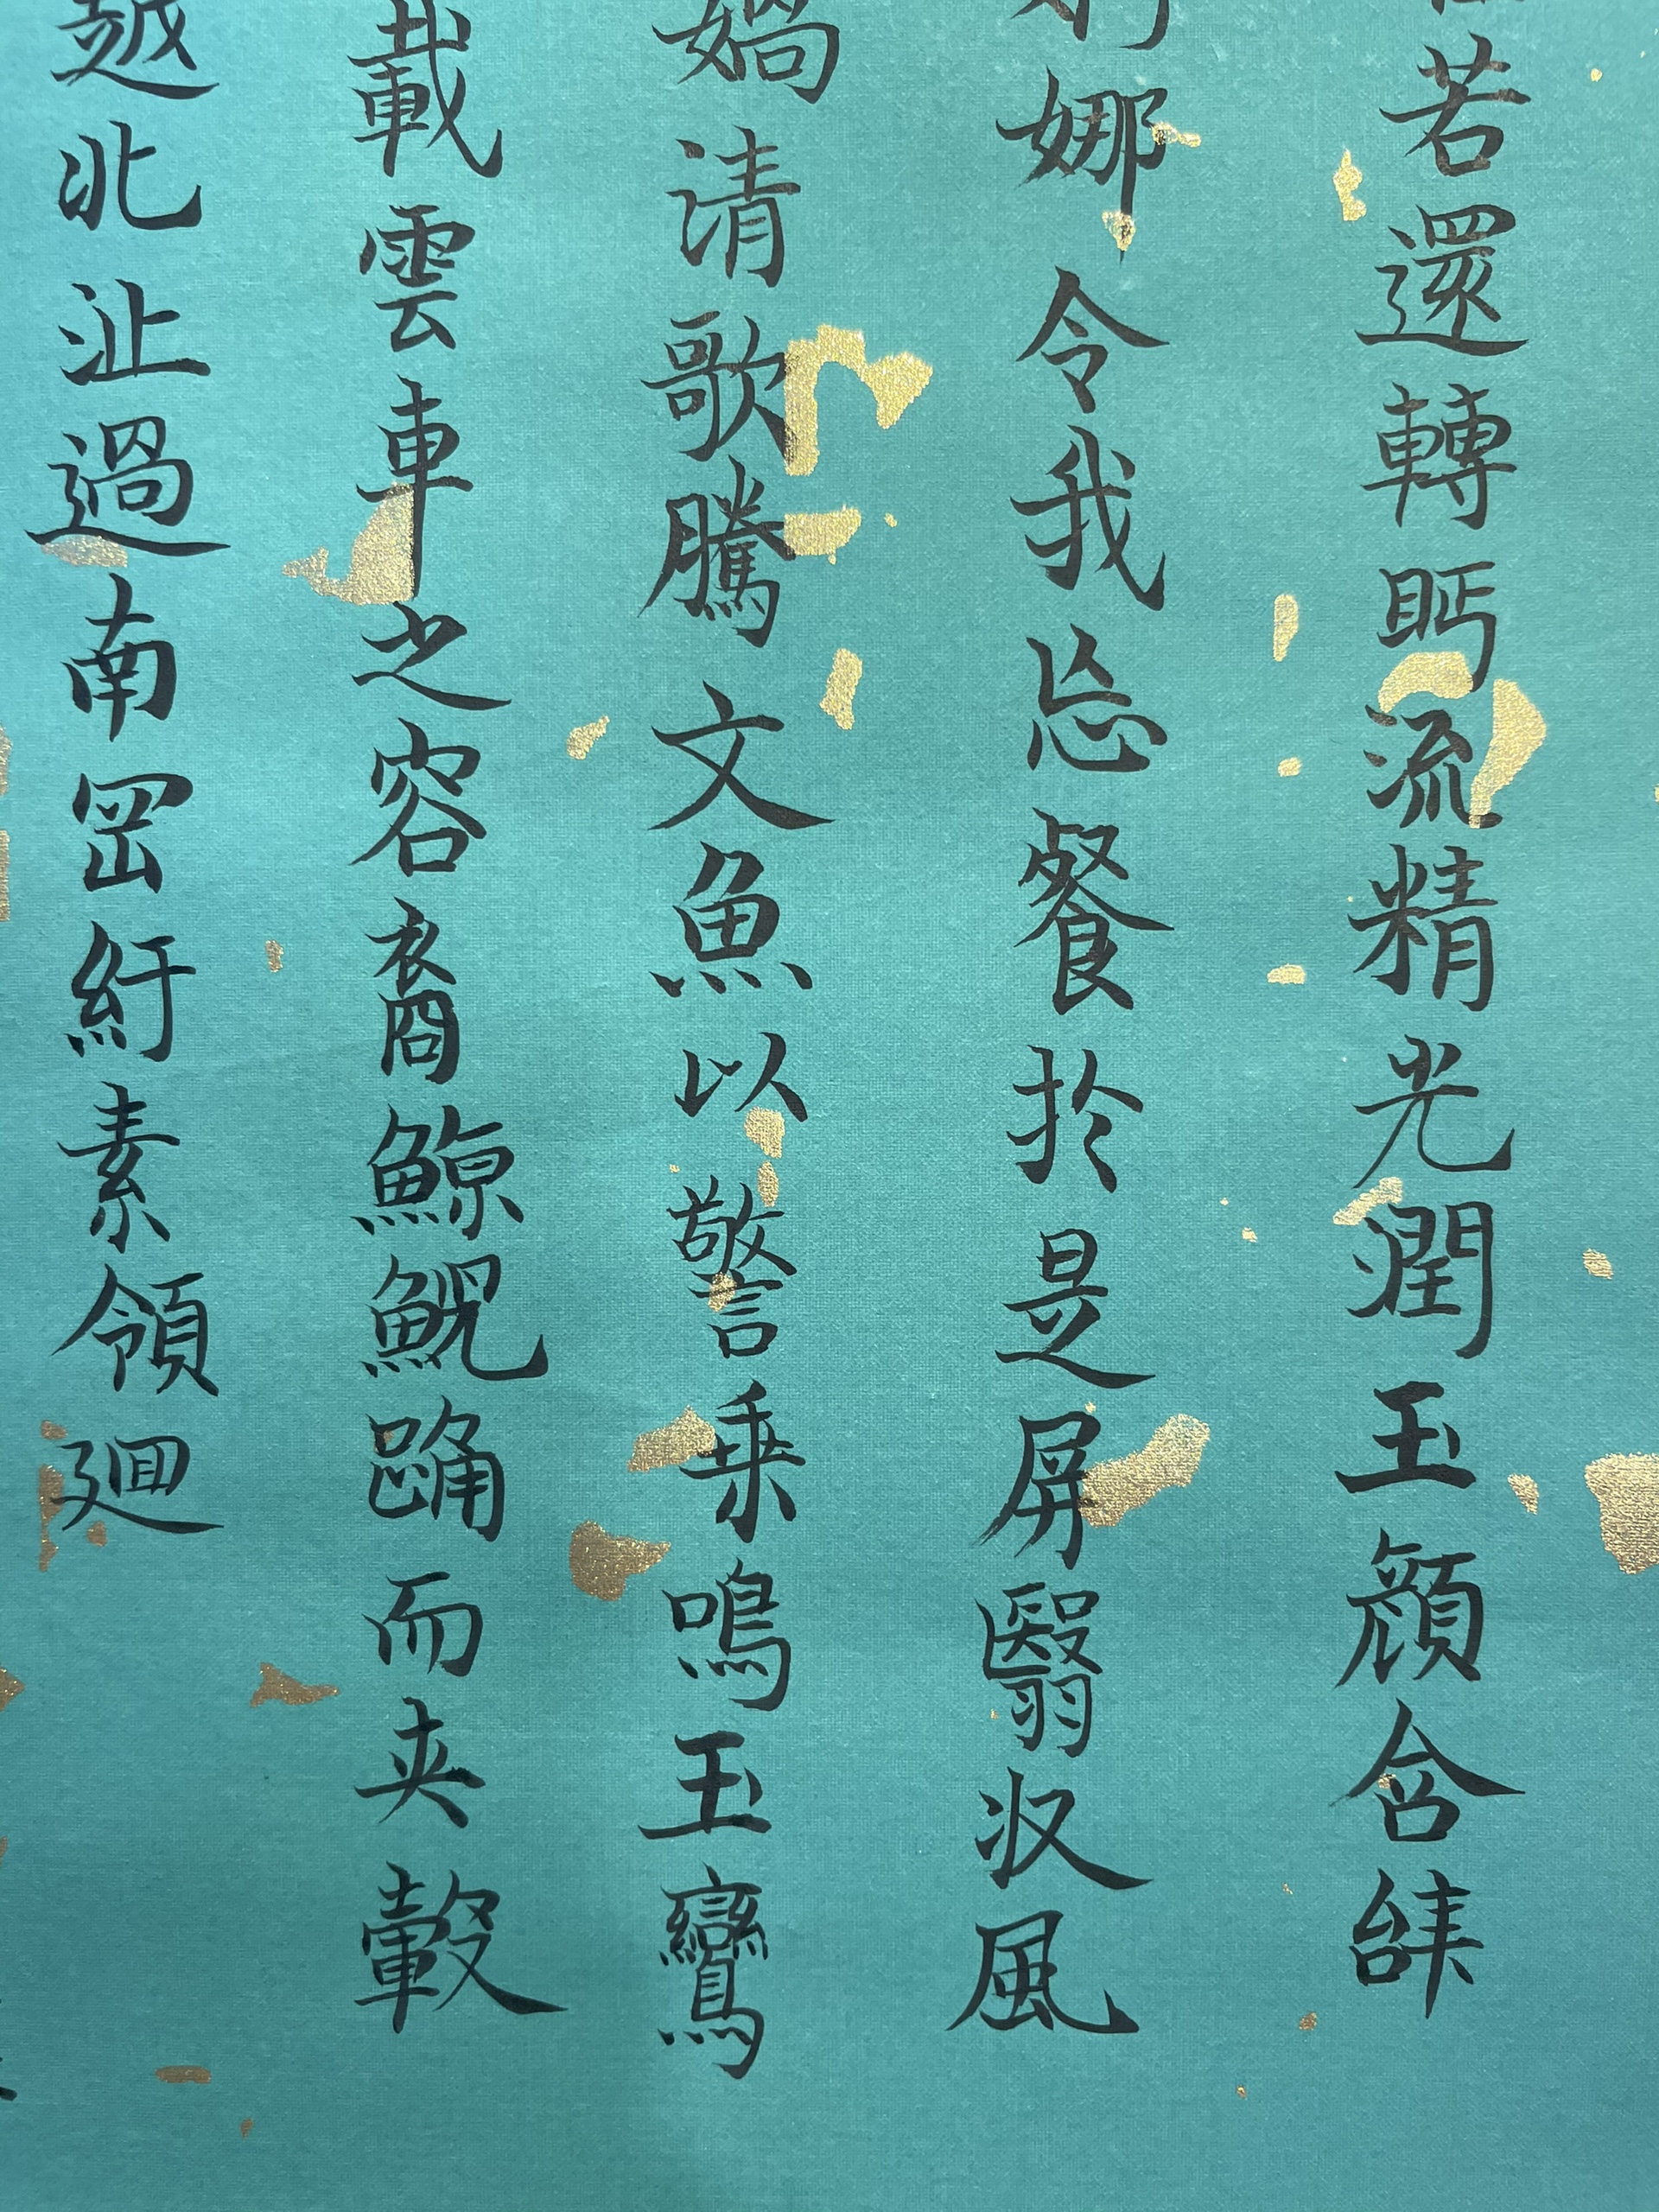 若還轉眄流精光潤玉顏含辝
娜令我忘餐扵是屏翳収風
媧清歌騰文魚以警乗鳴玉鸞
載雲車之容裔鯨鯢踊而夾轂
越北沚過南岡紆素領廻